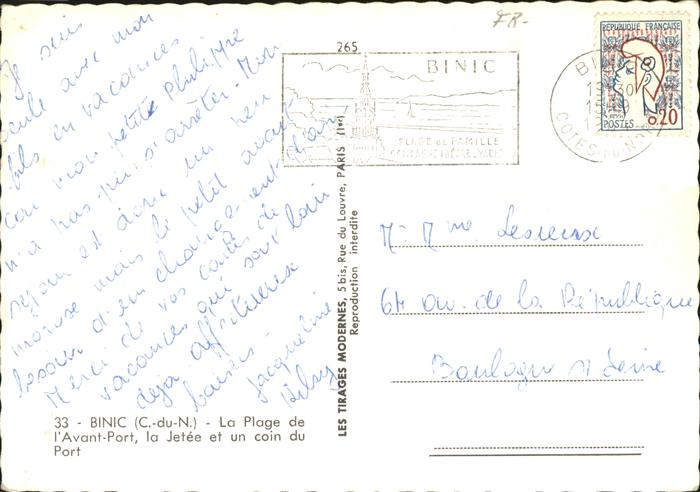 Je suis
seule avec mon
fils en vacances
car mon petit Philippe
n'a pas pu s'arrêter. Mon
séjour est donc un peu
morose mais le petit avait
besoin d'un changement d'air
Merci de vos cartes de
vacances qui sont loin
déjà affectueux
baisers -
Jacqueline
33 - BINIC (C.-du-N.) - La Plage de
l'Avant-Port, la Jetée et un coin du
Port
265
LES TIRAGES MODERNES, 5 bis, Rue du Louvre, PARIS (1er)
Reproduction interdite
FR-
BINIC
PLAGE DE FAMILLE
BINIC
CÔTES-DU-NORD
REPUBLIQUE FRANÇAISE
POSTES
0,20
M. Mme
64 av. de la République
Boulogne s/ Seine